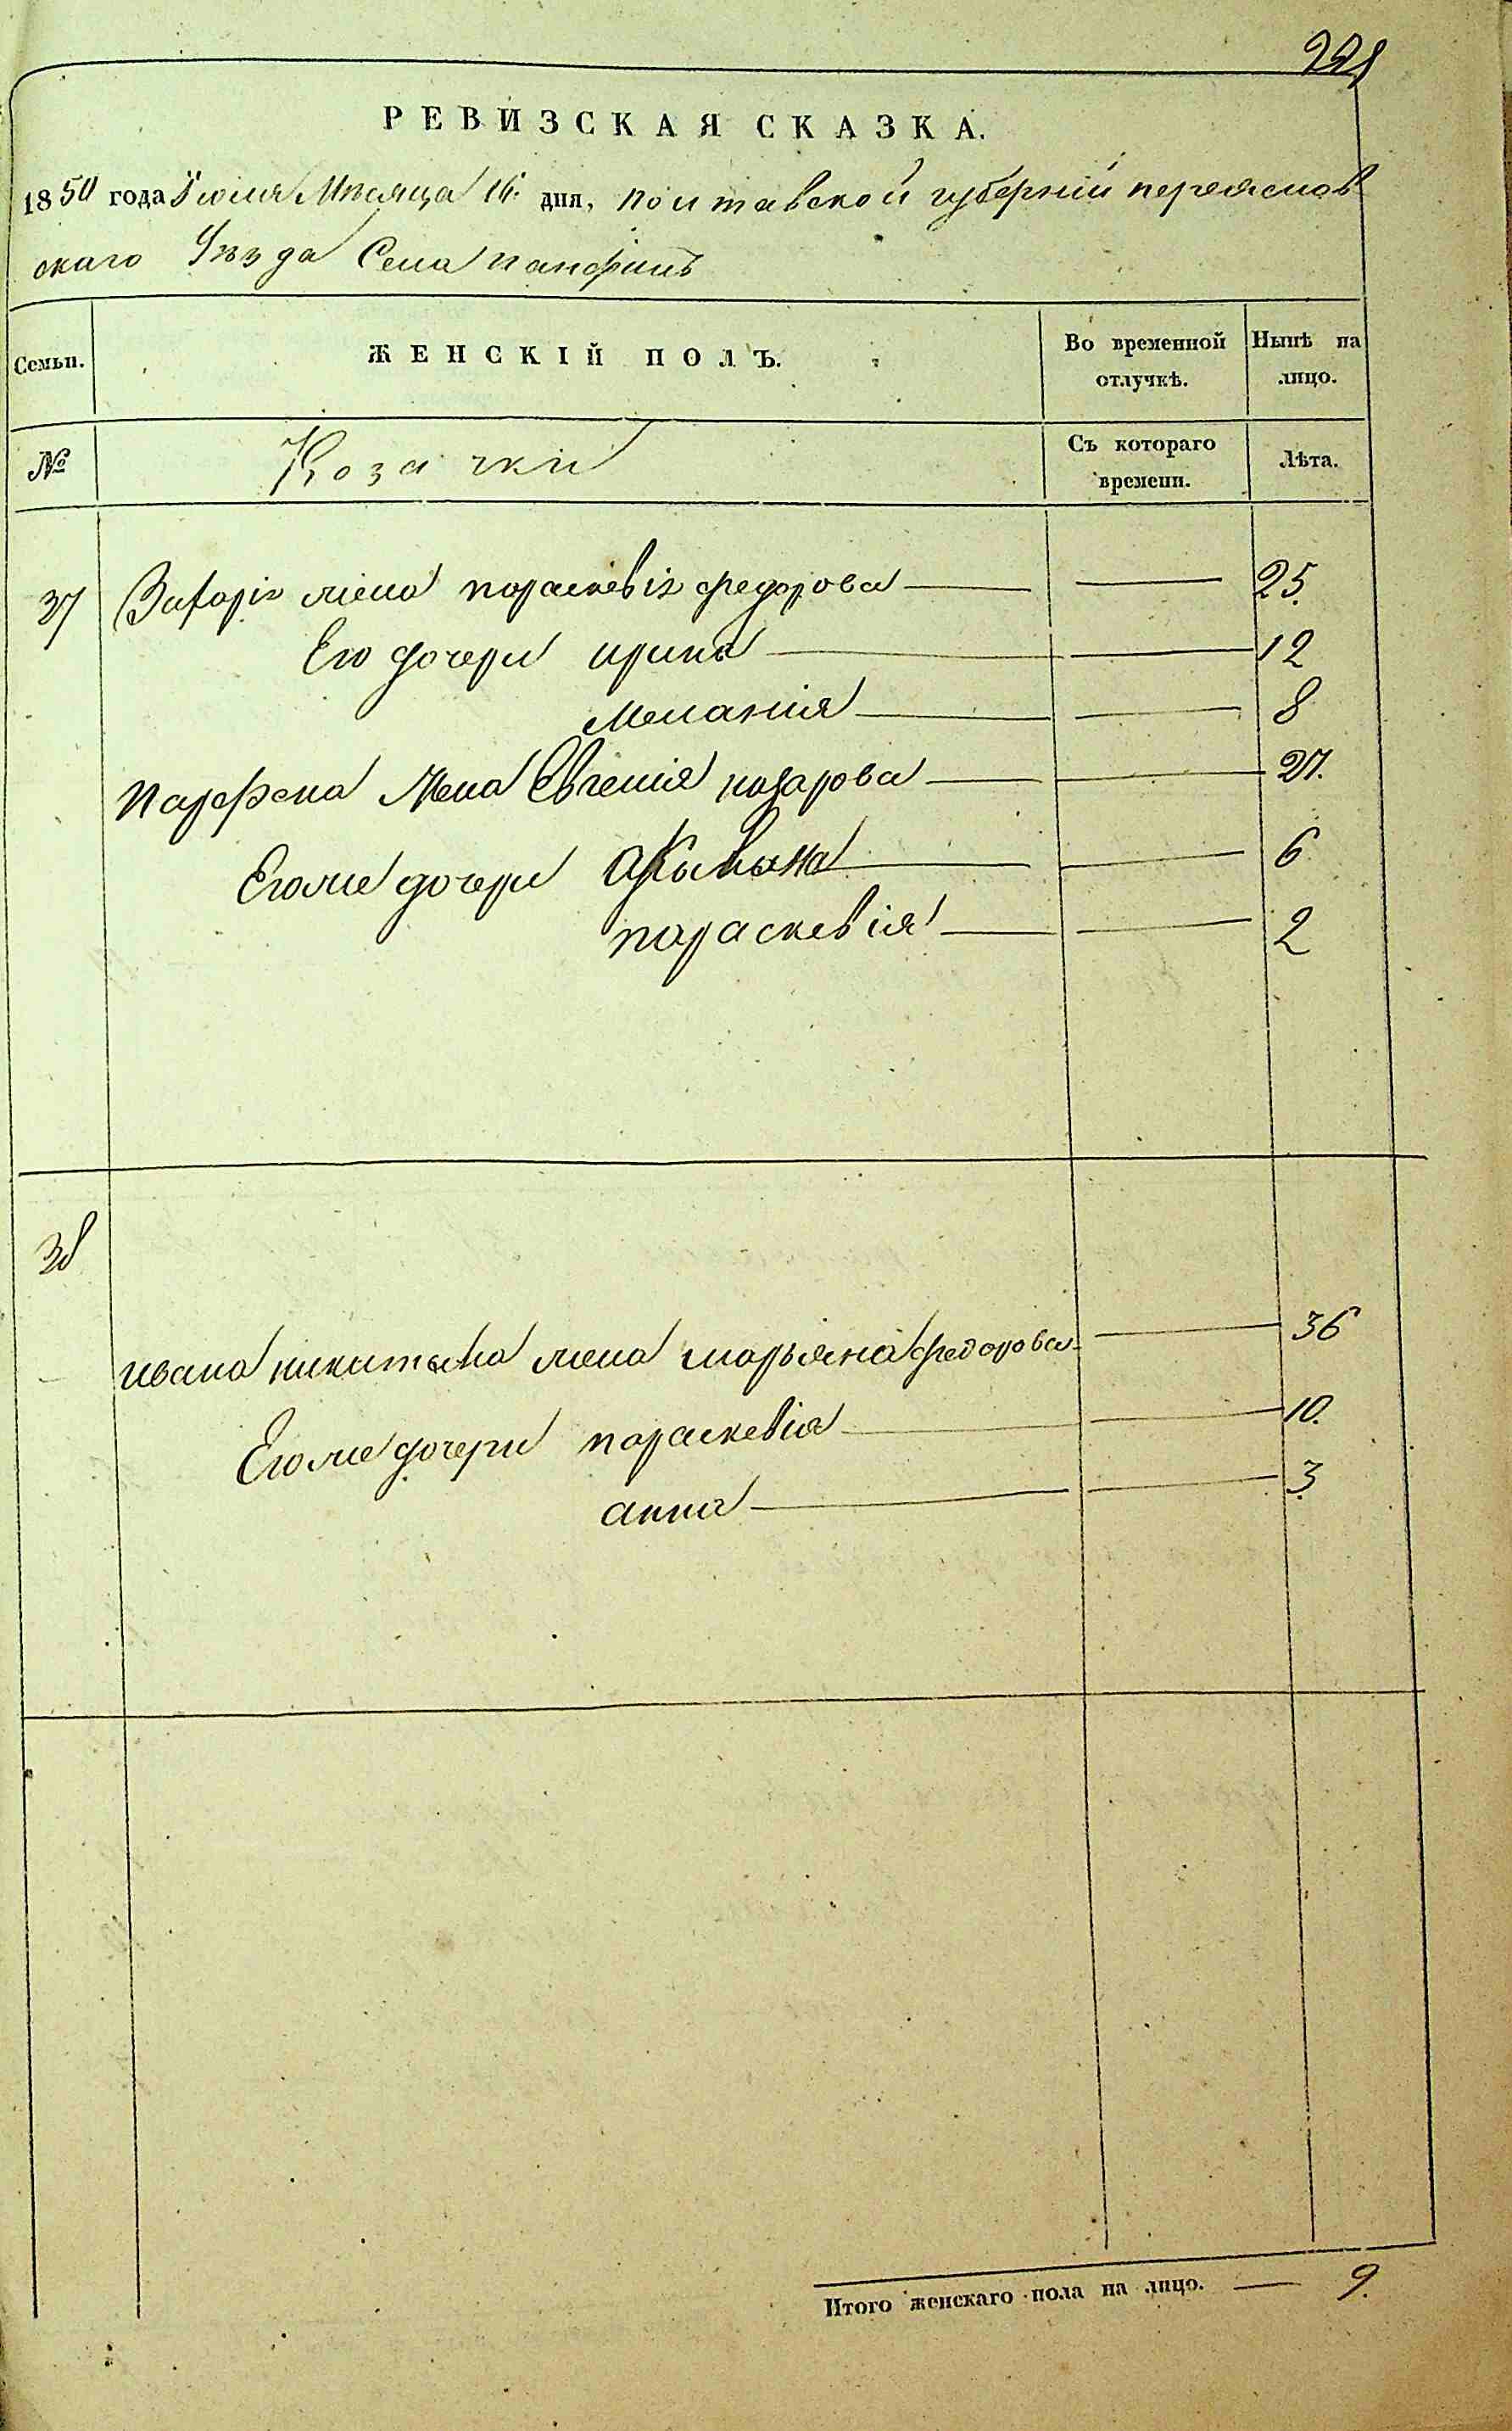 221
РЕВИЗСКАЯ СКАЗКА.
1850 года Іюля Мѣсяца 16. дня, полтавской губерніи переяслов
скаго Уѣзда Села панфилъ
Семьи. ЖЕНСКІЙ ПОЛЪ. Во временной отлучкѣ. Нынѣ на лицо.
№ Козачки Съ котораго времени. Лѣта.
37 Захаріи жена параскевія федорова — — 25.
Его дочери ирина — — 12
Меланія — — 8
парфена Жена Евгенія назарова — — 27.
Егоже дочери — — 6
параскевія — — 2
38
ивана никитина жена марьяна федорова — 36
Егоже дочери параскевія — — 10.
анна — — 3
Итого женскаго пола на лицо. — 9.